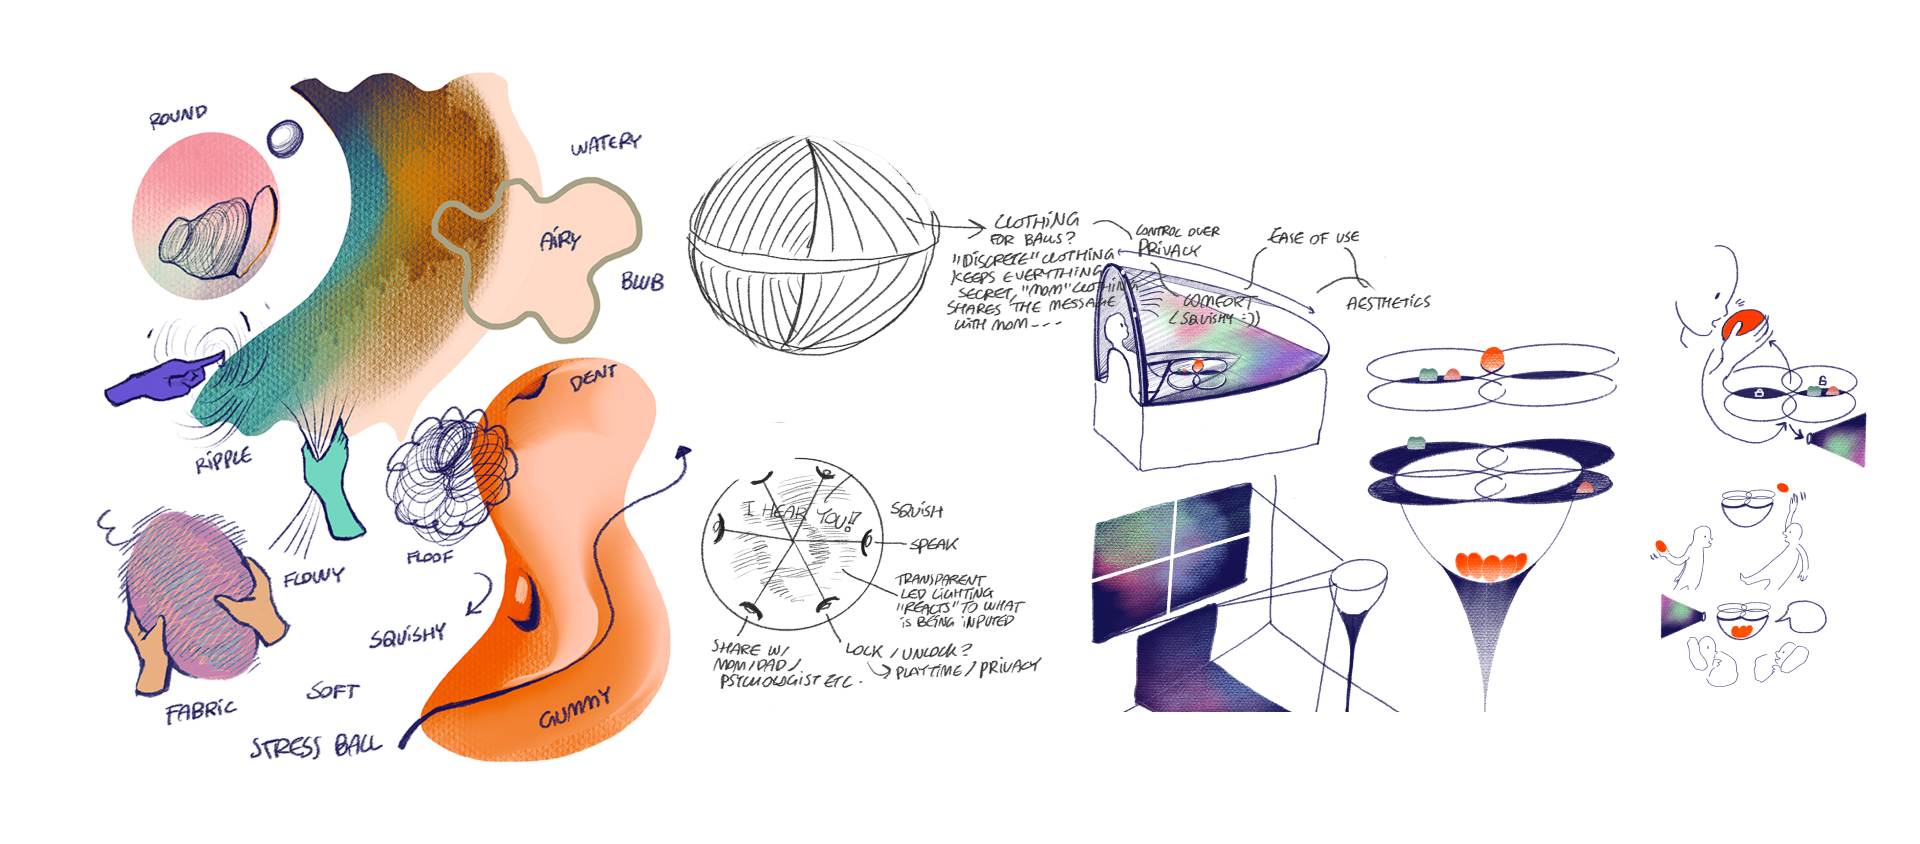 ROUND
WATERY
AIRY
BLUB
DENT
RIPPLE
FLOWY
FLOOF
SQUISHY
SOFT
FABRIC
GUMMY
STRESS BALL
CLOTHING
FOR BALLS?
"DISCRETE" CLOTHING
KEEPS EVERYTHING
SECRET, "MOM" CLOTHING
SHARES THE MESSAGE
WITH MOM - - -
CONTROL OVER
PRIVACY
EASE OF USE
COMFORT
(SQUISHY =))
AESTHETICS
I HEAR YOU!!
SQUISH
SPEAK
TRANSPARENT
LED LIGHTING
"REACTS" TO WHAT
IS BEING INPUTED
SHARE W/
MOM/DAD/
PSYCHOLOGIST ETC.
LOCK / UNLOCK?
PLAYTIME / PRIVACY